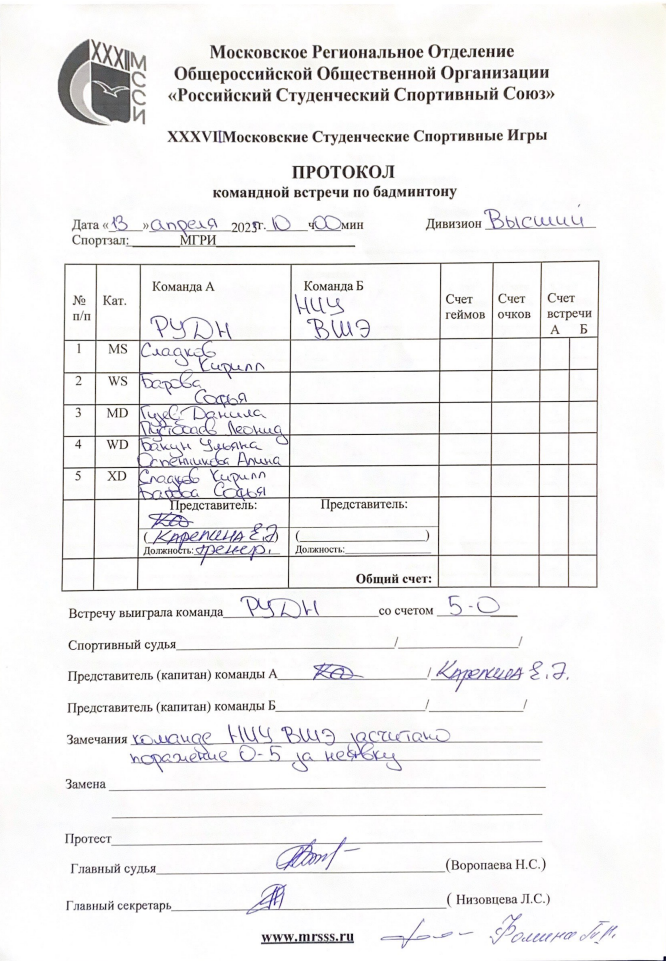 XXXII
МССИ
Московское Региональное Отделение
Общероссийской Общественной Организации
«Российский Студенческий Спортивный Союз»
XXXVI Московские Студенческие Спортивные Игры
ПРОТОКОЛ
командной встречи по бадминтону
Дата «13» апреля 2025г. 10 ч 00 мин Дивизион Высший
Спортзал: МГРИ
№ п/п Кат. Команда А РУДН Команда Б НИУ ВШЭ Счет геймов Счет очков Счет встречи А Б
1 MS Сладков
Кирилл
2 WS Барова
Софья
3 MD Гузев Данила
Леонид
4 WD Бакун Ульяна
Оспенникова Алина
5 XD Сладков Кирилл
Барова Софья
Представитель: Представитель:
(Карепина Е.Э) ( )
Должность: тренер. Должность:
Общий счет:
Встречу выиграла команда РУДН со счетом 5-0
Спортивный судья / /
Представитель (капитан) команды А / Карепина Е.Э.
Представитель (капитан) команды Б / /
Замечания команде НИУ ВШЭ засчитано
поражение 0-5 за неявку
Замена
Протест
Главный судья (Воропаева Н.С.)
Главный секретарь ( Низовцева Л.С.)
www.mrsss.ru Фомина Т.Н.